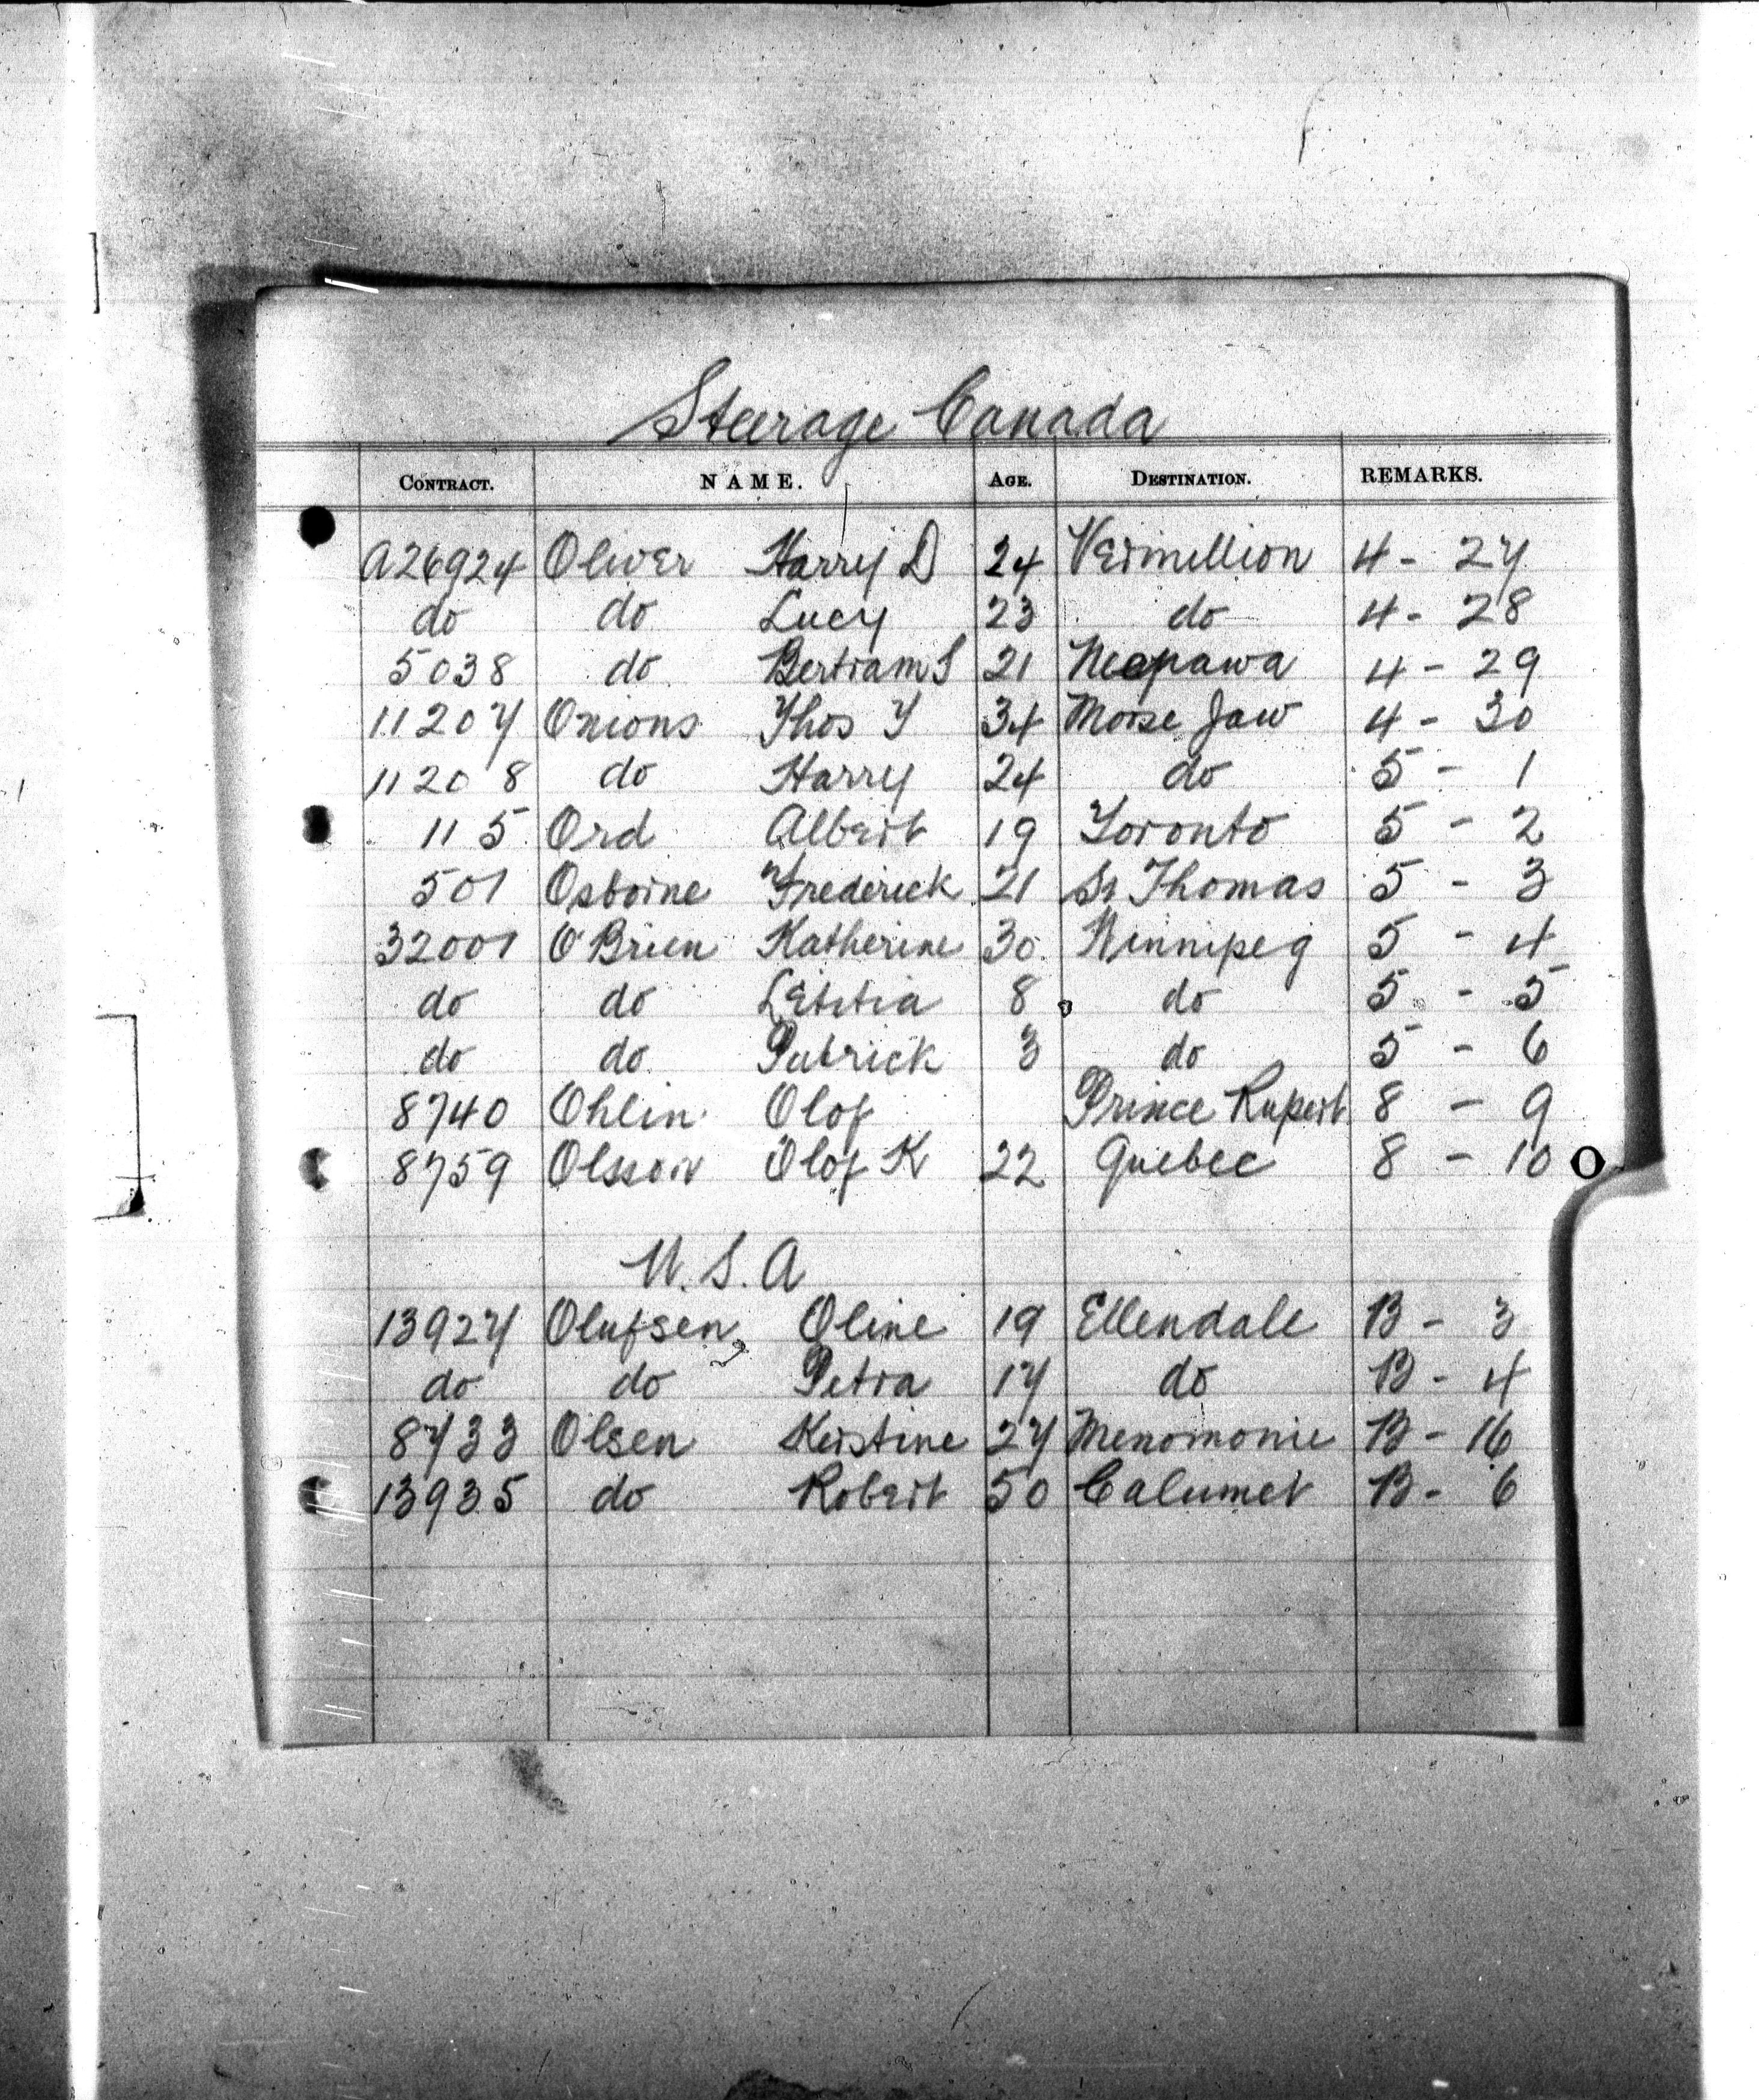 Steerage Canada
CONTRACT. NAME. AGE. DESTINATION. REMARKS.
A26924 Oliver Harry D 24 Vermillion 4 - 27
do do Lucy 23 do 4 - 28
5038 do Bertram S 21 Neepawa 4 - 29
11207 Onions Thos T 34 Moose Jaw 4 - 30
11208 do Harry 24 do 5 - 1
115 Ord Albert 19 Toronto 5 - 2
501 Osborne Frederick 21 St Thomas 5 - 3
32001 O'Brien Katherine 30 Winnipeg 5 - 4
do do Letitia 8 do 5 - 5
do do Patrick 3 do 5 - 6
8740 Ohlin Olof Prince Rupert 8 - 9
8759 Olsson Olof K 22 Quebec 8 - 10
O
U.S.A
13927 Olufsen, Oline 19 Ellendale B - 3
do do Petra 17 do B - 4
8733 Olsen Kristine 27 Menomonie B - 16
13935 do Robert 50 Calumet B - 6